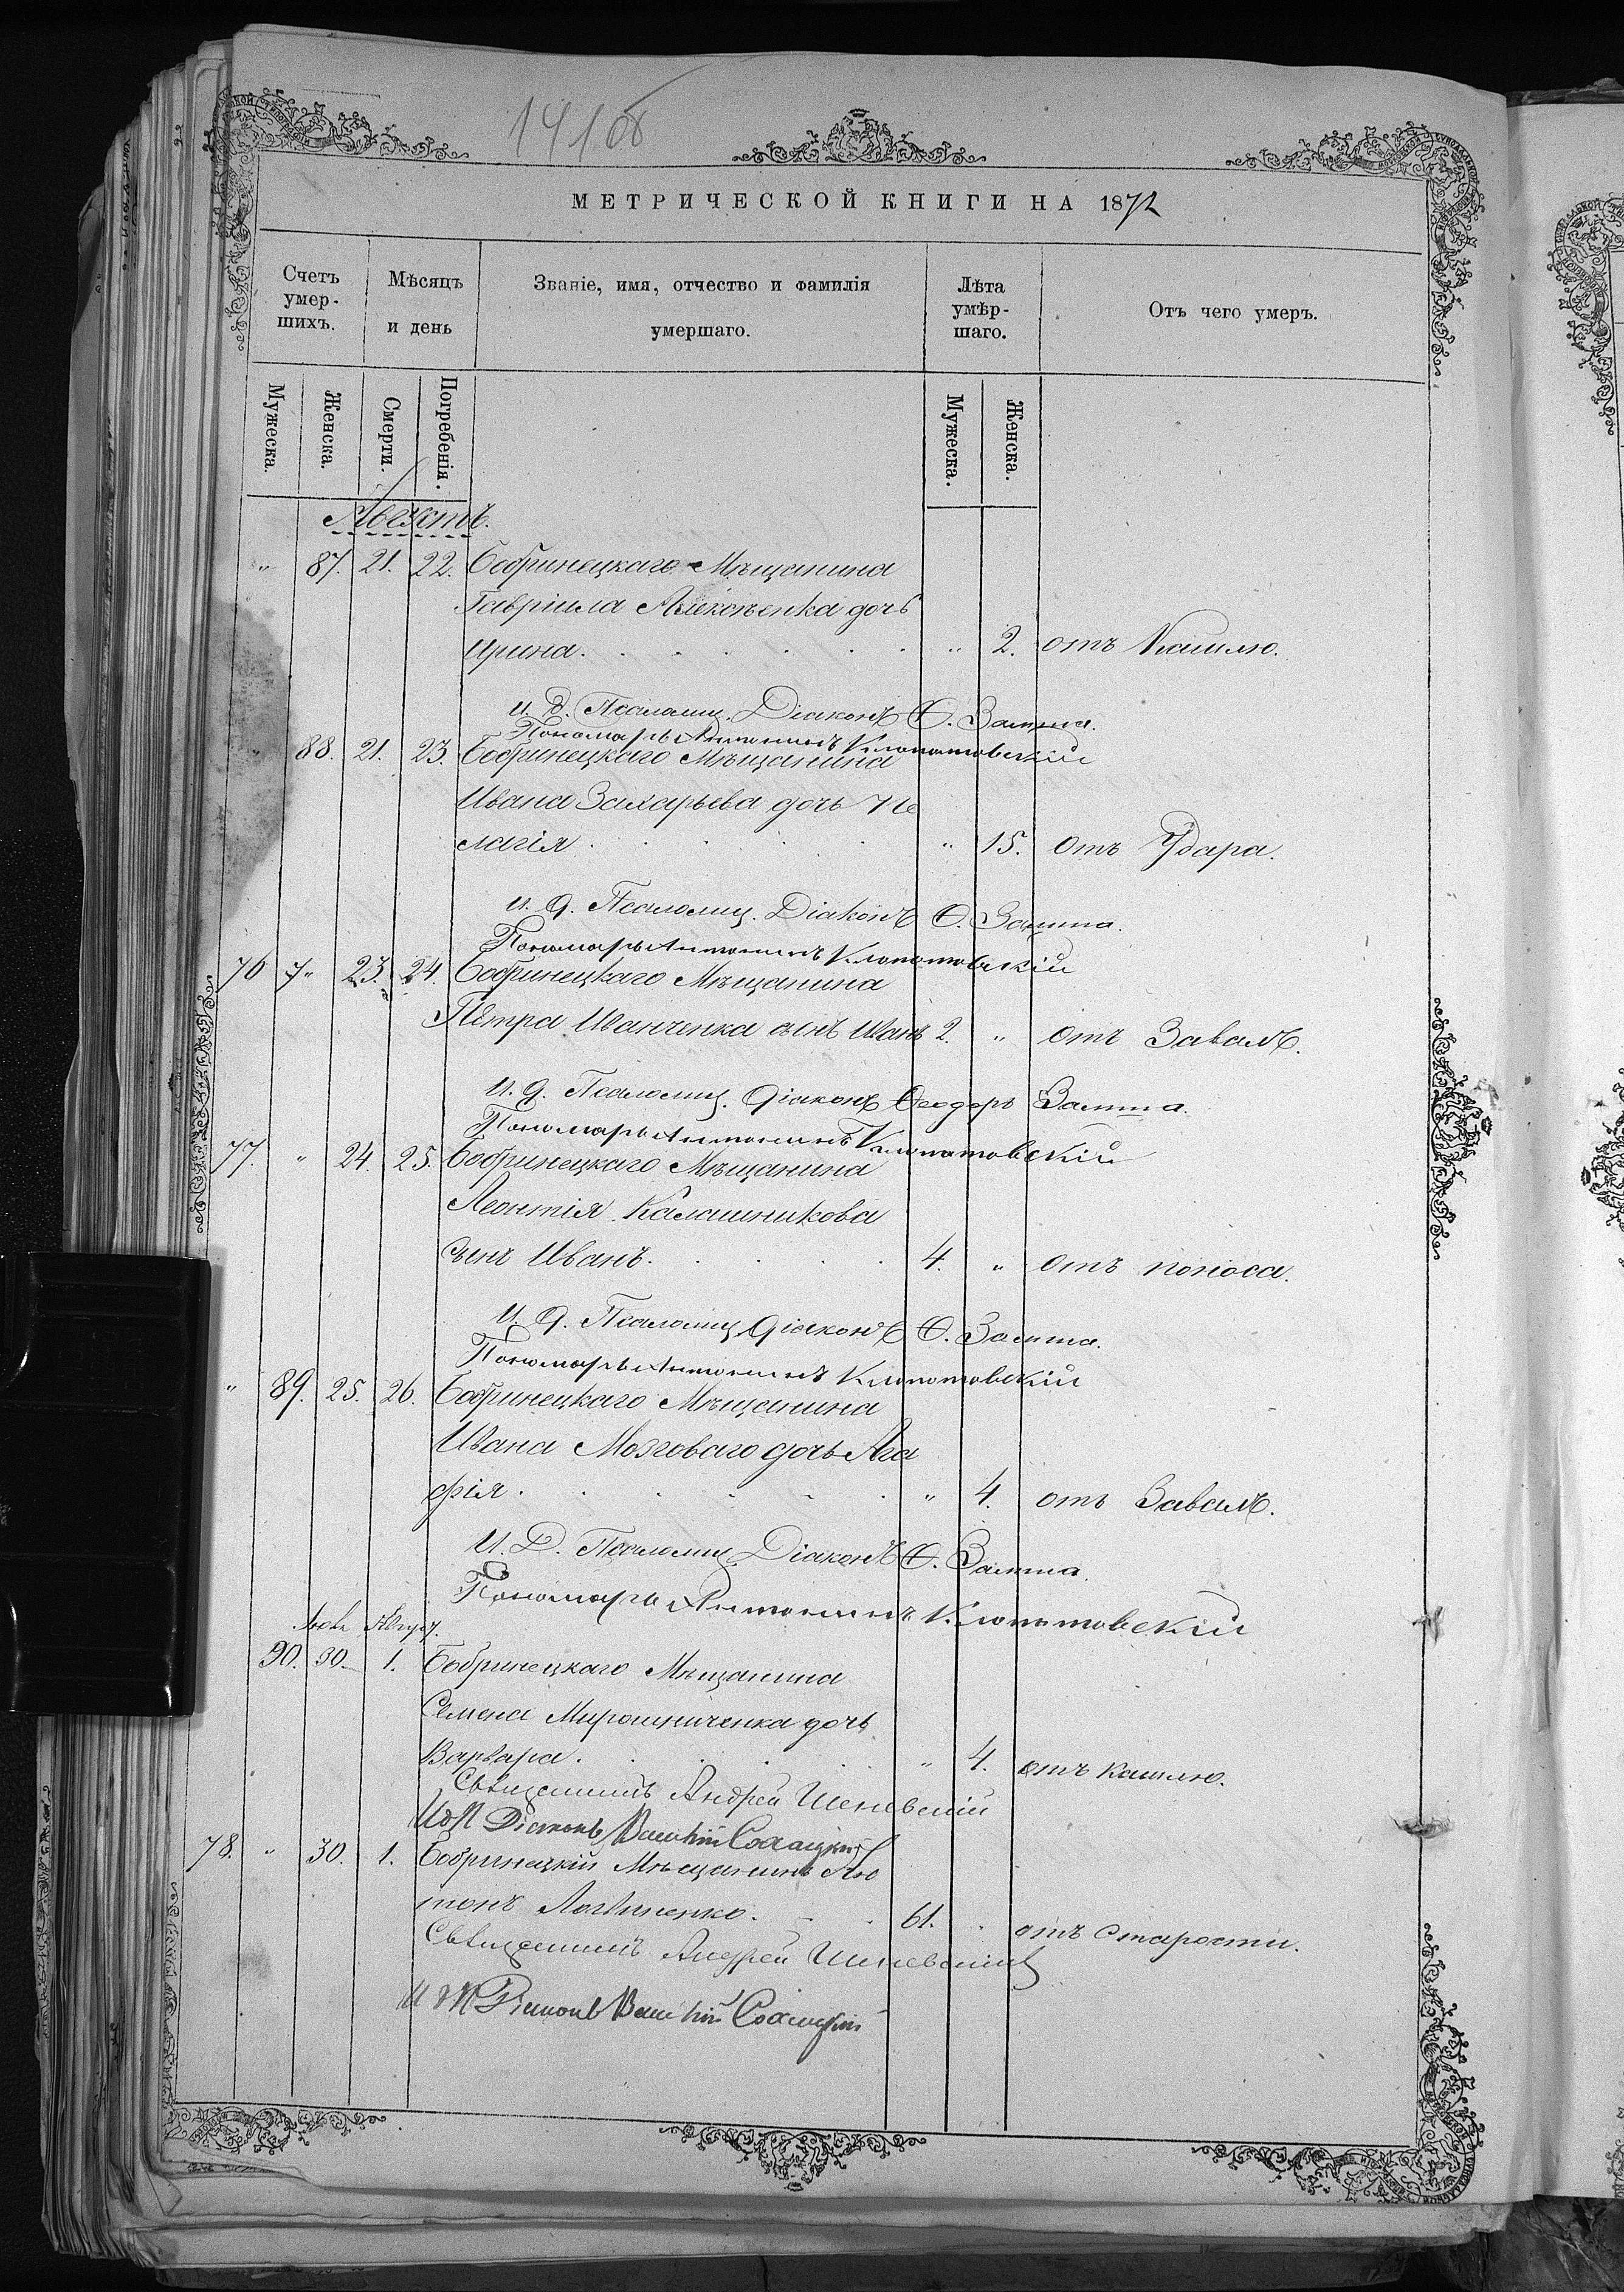 141об
МЕТРИЧЕСКОЙ КНИГИ НА 1872
Счетъ умер-шихъ.
Мѣсяцъ и день
Званіе, имя, отчество и фамилія умершаго.
Лѣта умѣр-шаго.
Отъ чего умеръ.
Мужеска.
Женска.
Смерти.
Погребенія.
Мужеска.
Женска.
Августъ.
„ 87. 21. 22. Бобринецкаго Мѣщанина
Гавріила Алексѣенка дочь
Ирина. „ 2. отъ Кашлю.
И. д. Псаломщ. Діаконъ Ѳ. Замша.
Пономарь Антонинъ Клопотовскій
„ 88. 21. 23. Бобринецкаго Мѣщанина
Ивана Захарьева дочь Пе
лагія „ 15. отъ Удара.
И. д. Псаломщ. Діаконъ Ѳ. Замша.
Пономарь Антонинъ Клопотовскій
76 „ 23. 24. Бобринецкаго Мѣщанина
Петра Иванченка сынъ Иванъ 2. „ отъ Завалъ.
И. д. Псаломщ. Діаконъ Ѳеодоръ Замша.
Пономарь Антонинъ Клопотовскій
77. „ 24. 25. Бобринецкаго Мѣщанина
Леонтія Калашникова
сынъ Иванъ. 4. „ отъ поноса.
И. д. Псаломщ. Діаконъ Ѳ. Замша.
Пономарь Антонинъ Клопотовскій
„ 89. 25. 26. Бобринецкаго Мѣщанина
Ивана Мозговаго дочь Ага
фія. „ 4. отъ Завалъ.
И. Д. Псаломщ. Діаконъ Ѳ. Замша.
Пономарь Антонинъ Клопотовскій
90. 30. 1. Бобринецкаго Мѣщанина
Семена Мирошниченка дочь
Варвара. „ 4. отъ кашлю.
Священникъ Андрей
Діаконъ
78. „ 30. 1. Бобринецкій Мѣщанинъ Ан
тонъ Логвиненко. 61. „ отъ старости.
Священникъ Андрей
Діаконъ